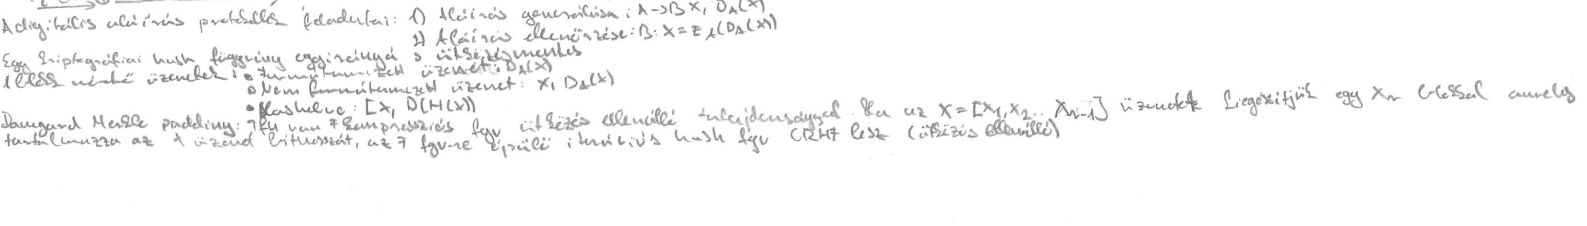 A digitális aláírás protokollok feladatai: 1) Aláírás generálása: A->B X, D_A(X)
2) Aláírás ellenőrzése: B: X = E_A(D_A(X))
Egy kriptográfiai hash függvény egyirányú s ütközésmentes
1 blokk méretű üzenetek: • Formátumozott üzenet: D_A(X)
• Nem formátumozott üzenet: X, D_A(X)
• Hashelve: [X, D(H(X))
Damgard Merkle padding: van f kompressziós fgv ütközés ellenálló tulajdonsággal. Ha az X = [X_1, X_2 .. X_n-1] üzenetet kiegészítjük egy X_n blokkal amely
tartalmazza az üzenet bithosszát, az f fgv-re épülő iterációs hash fgv CRHF lesz (ütközés ellenálló)